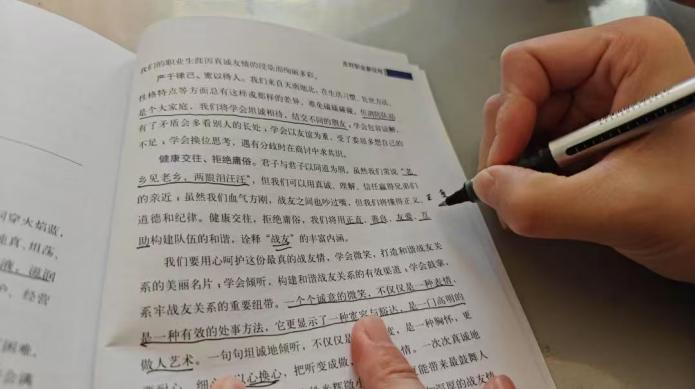 我们的职业生涯因真诚友情的浸染而绚丽多彩。
严于律己、宽以待人。我们来自天南地北，在生活习惯、处世方法、
性格特点等方面总有这样或那样的差异，难免磕磕碰碰。但部队
是个大家庭，我们将学会坦诚相待，结交不同的朋友；学会包容谅解，
有了矛盾会多看别人的长处；学会以友谊为重，受了委屈多想自己的
不足；学会换位思考，遇有分歧时在商讨中求共识。
健康交往、拒绝庸俗。君子与君子以同道为朋。虽然我们常说“老
乡见老乡，两眼泪汪汪”，但我们可以用真诚、理解、信任赢得兄弟们
的亲近；虽然我们血气方刚，战友之间也吵过嘴，但我们将懂得正义、
道德和纪律。健康交往，拒绝庸俗，我们将用正直、善良、友爱、互
助构建队伍的和谐，诠释“战友”的丰富内涵。
我们要用心呵护这份最真的战友情，学会微笑，打造和谐战友关
系的美丽名片；学会倾听，构建和谐战友关系的有效渠道；学会鼓掌，
系牢战友关系的重要纽带。一个个诚意的微笑，不仅仅是一种表情，
是一种有效的处事方法，它更显示了一种宽容与豁达，是一门高明的
做人艺术。一句句坦诚地倾听，不仅仅是 ，是一种胸怀，更
心换心，把听变成做 情。一次次真诚地
能带来最鼓舞人
的战友情
同穿火焰蓝，
纯真、坦荡、
液，滋润
、经营
困难，
会满